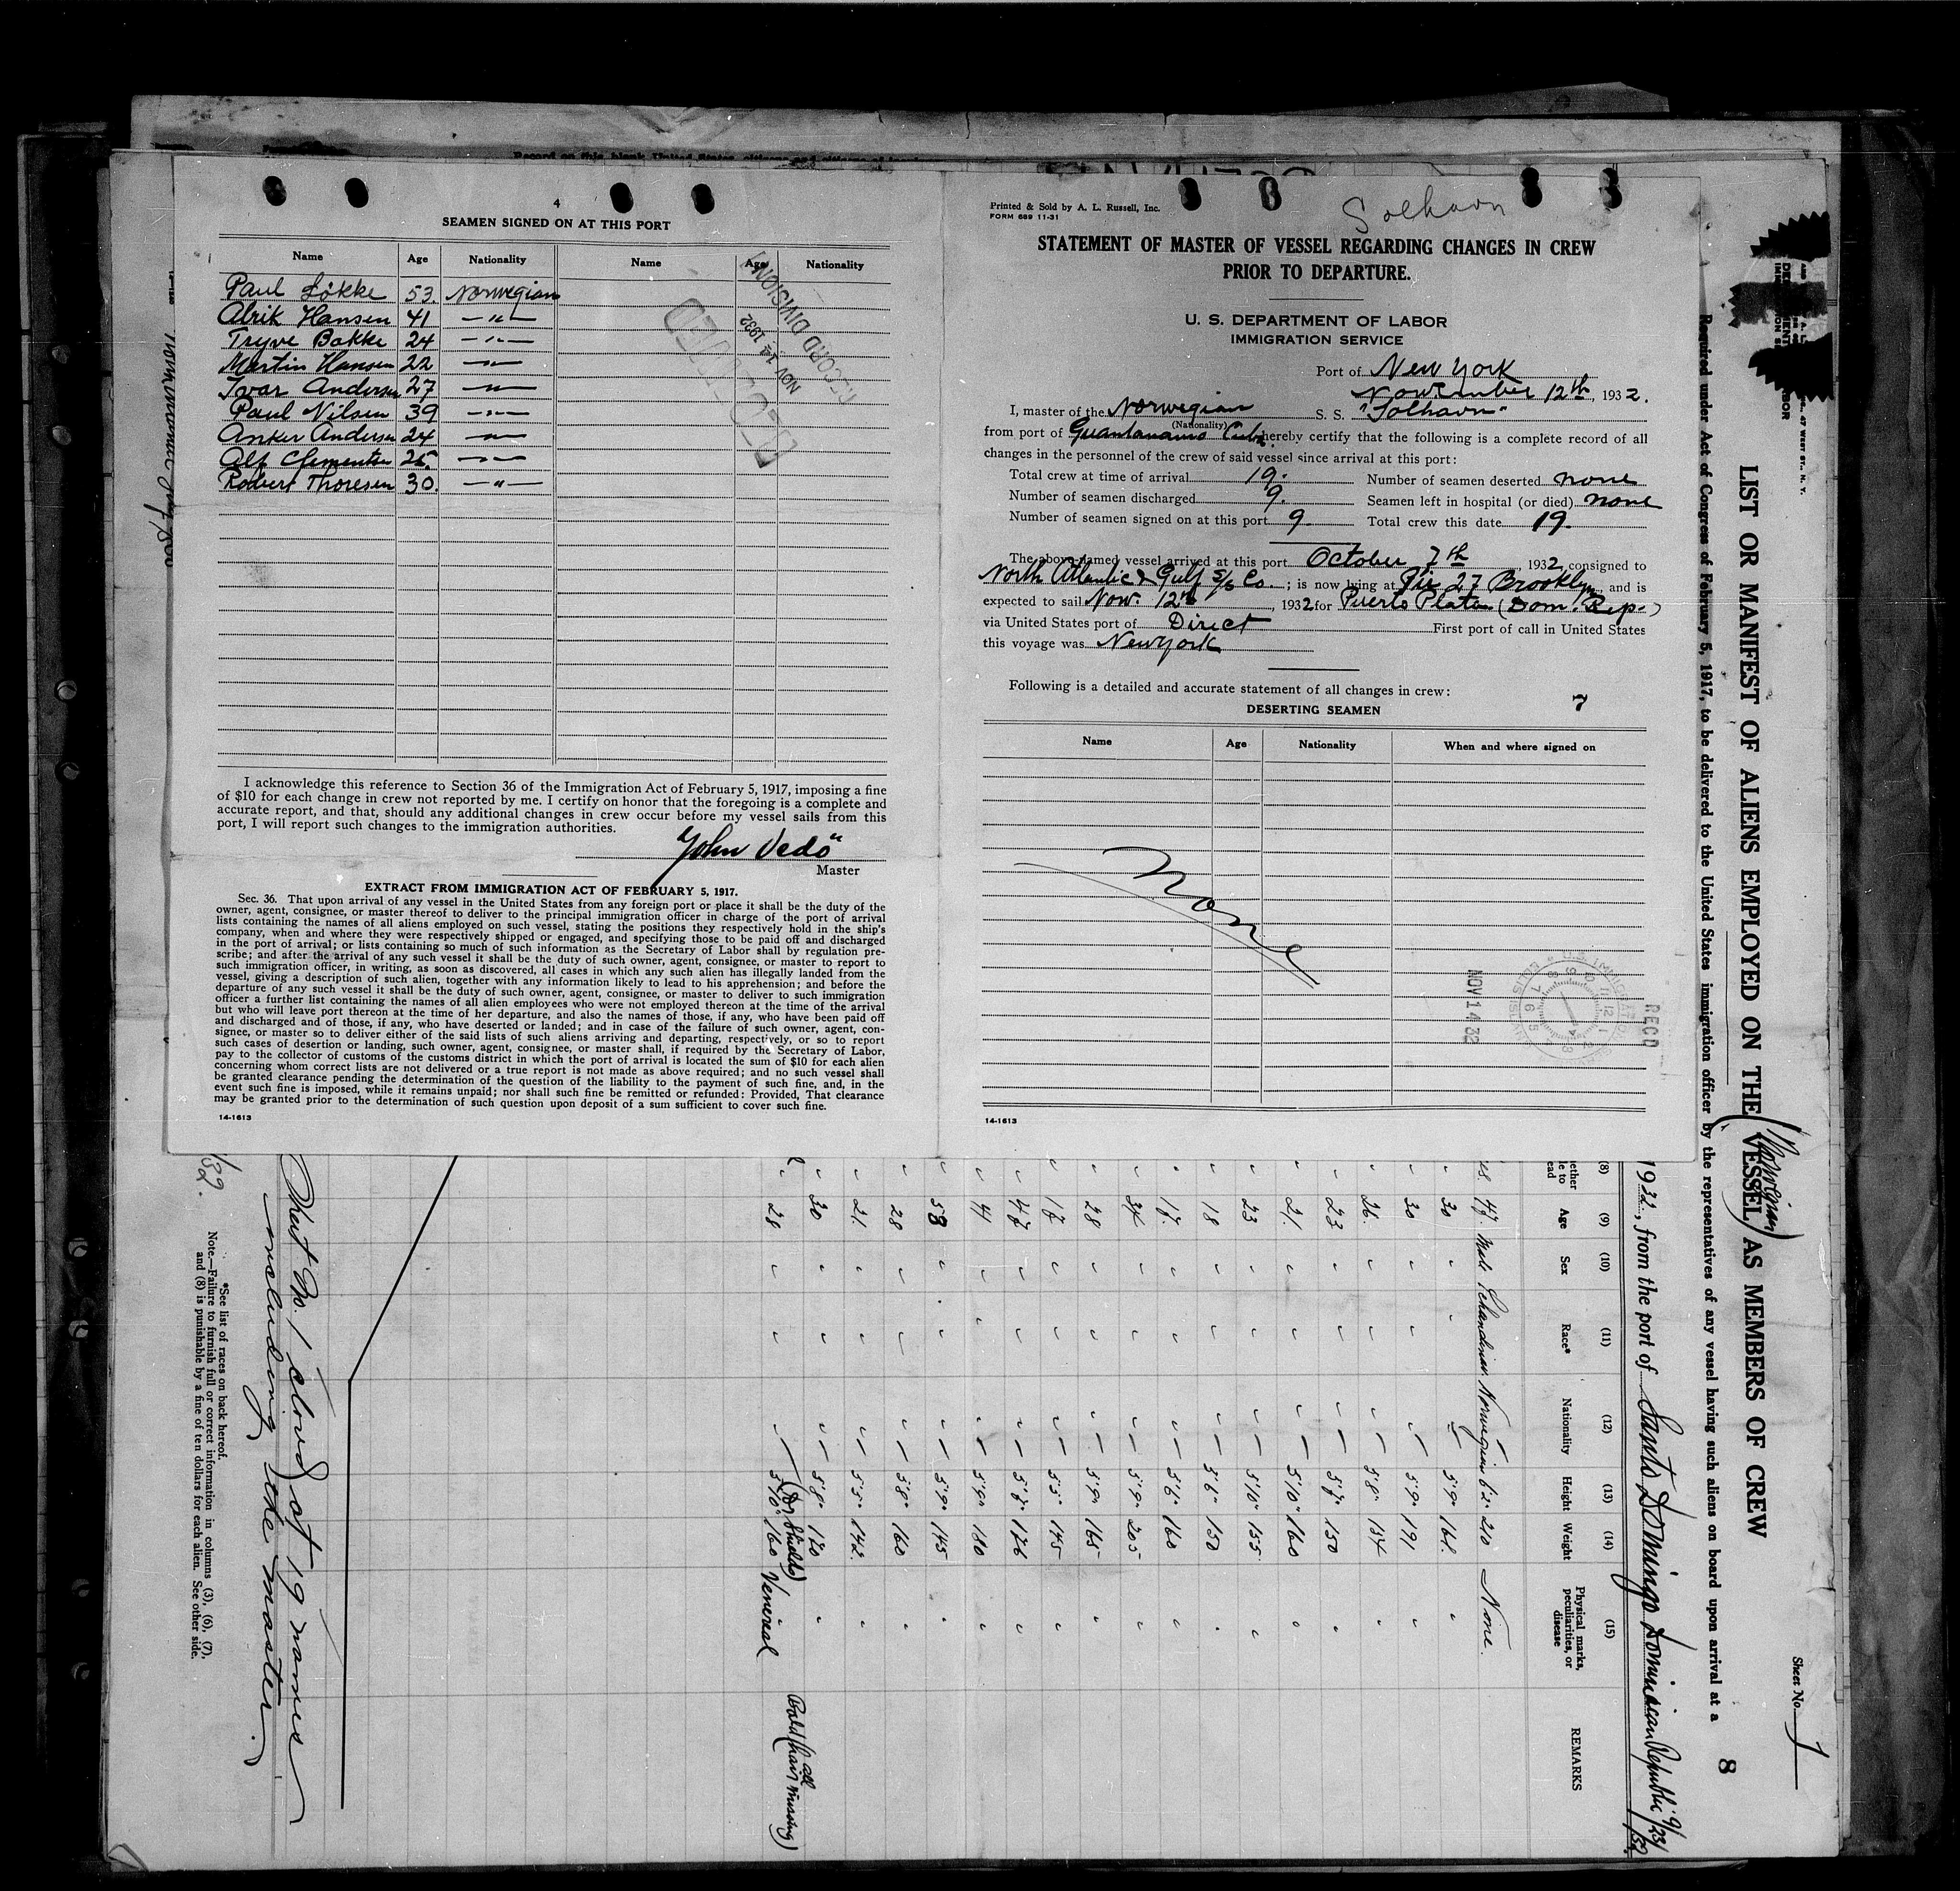 4
SEAMEN SIGNED ON AT THIS PORT
Name Age Nationality Name Age Nationality
Paul Lökke 53. Norwegian
Alrik Hansen 41 —"—
Tryve Bakke 24 —"—
Martin Hansen 22 —"—
Ivar Andersen 27 —"—
Paul Nilsen 39 —"—
Anker Andersen 24 —"—
Alf Clementsen 25. —"—
Robert Thoresen 30. —"—
RECORD DIVISION
NOV 14 1932
I acknowledge this reference to Section 36 of the Immigration Act of February 5, 1917, imposing a fine
of $10 for each change in crew not reported by me. I certify on honor that the foregoing is a complete and
accurate report, and that, should any additional changes in crew occur before my vessel sails from this
port, I will report such changes to the immigration authorities.
John Vedö
Master
EXTRACT FROM IMMIGRATION ACT OF FEBRUARY 5, 1917.
Sec. 36. That upon arrival of any vessel in the United States from any foreign port or place it shall be the duty of the
owner, agent, consignee, or master thereof to deliver to the principal immigration officer in charge of the port of arrival
lists containing the names of all aliens employed on such vessel, stating the positions they respectively hold in the ship's
company, when and where they were respectively shipped or engaged, and specifying those to be paid off and discharged
in the port of arrival; or lists containing so much of such information as the Secretary of Labor shall by regulation pre-
scribe; and after the arrival of any such vessel it shall be the duty of such owner, agent, consignee, or master to report to
such immigration officer, in writing, as soon as discovered, all cases in which any such alien has illegally landed from the
vessel, giving a description of such alien, together with any information likely to lead to his apprehension; and before the
departure of any such vessel it shall be the duty of such owner, agent, consignee, or master to deliver to such immigration
officer a further list containing the names of all alien employees who were not employed thereon at the time of the arrival
but who will leave port thereon at the time of her departure, and also the names of those, if any, who have been paid off
and discharged and of those, if any, who have deserted or landed; and in case of the failure of such owner, agent, con-
signee, or master so to deliver either of the said lists of such aliens arriving and departing, respectively, or so to report
such cases of desertion or landing, such owner, agent, consignee, or master shall, if required by the Secretary of Labor,
pay to the collector of customs of the customs district in which the port of arrival is located the sum of $10 for each alien
concerning whom correct lists are not delivered or a true report is not made as above required; and no such vessel shall
be granted clearance pending the determination of the question of the liability to the payment of such fine, and, in the
event such fine is imposed, while it remains unpaid; nor shall such fine be remitted or refunded: Provided, That clearance
may be granted prior to the determination of such question upon deposit of a sum sufficient to cover such fine.
14-1613
Printed & Sold by A. L. Russell, Inc.
FORM 689 11-31
Solhavn
STATEMENT OF MASTER OF VESSEL REGARDING CHANGES IN CREW
PRIOR TO DEPARTURE.
U. S. DEPARTMENT OF LABOR
IMMIGRATION SERVICE
Port of New York
November 12th, 1932.
I, master of the Norwegian S. S. "Solhavn"
(Nationality)
from port of Guantanamo Cuba hereby certify that the following is a complete record of all
changes in the personnel of the crew of said vessel since arrival at this port:
Total crew at time of arrival 19. Number of seamen deserted none
Number of seamen discharged 9. Seamen left in hospital (or died) none
Number of seamen signed on at this port 9. Total crew this date 19.
The above-named vessel arrived at this port October 7th, 1932, consigned to
North Atlantic & Gulf S/S Co; is now lying at Pir 27 Brooklyn, and is
expected to sail Nov. 12th, 1932 for Puerto Plata (Dom. Rep.)
via United States port of Direct First port of call in United States
this voyage was New York
Following is a detailed and accurate statement of all changes in crew:
7
DESERTING SEAMEN
Name Age Nationality When and where signed on
None
NOV 14 32
REC'D
14-1613
Sheet No. 1
8
LIST OR MANIFEST OF ALIENS EMPLOYED ON THE (Norwegian) VESSEL AS MEMBERS OF CREW
Required under Act of Congress of February 5, 1917, to be delivered to the United States immigration officer by the representatives of any vessel having such aliens on board upon arrival at a
1932, from the port of Santo Domingo Dominican Republic 9/23/32
(8) (9) (10) (11) (12) (13) (14) (15)
Age Sex Race* Nationality Height Weight Physical marks, peculiarities, or disease REMARKS
47. Male Scandinav. Norwegian 6'2" 210 None.
30 " " " 5'9" 168.
30 " " " 5'9" 191 "
26. " " " 5'8" 154 "
23 " " " 5'7" 150 "
21. " " " 5'10" 160 "
23 " " " 5'10" 155. "
18 " " " 5'6" 150 "
17. " " " 5'6" 160 "
34 " " " 5'9" 205 "
28 " " " 5'9" 165 "
17 " " " 5'5" 145 "
47 " " " 5'7" 176 "
41 " " " 5'9" 180 "
58 " " " 5'9" 145 "
28 " " " 5'8" 160 "
21. " " " 5'5" 142. "
30 " " " 5'8" 170 "
28 " " " 5'10" 160 Venereal Bald (all hair missing)
Sheet No. 1 closed at 19 names
including the master.
*See list of races on back hereof.
Note.—Failure to furnish full or correct information in columns (3), (6), (7),
and (8) is punishable by a fine of ten dollars for each alien. See other side.